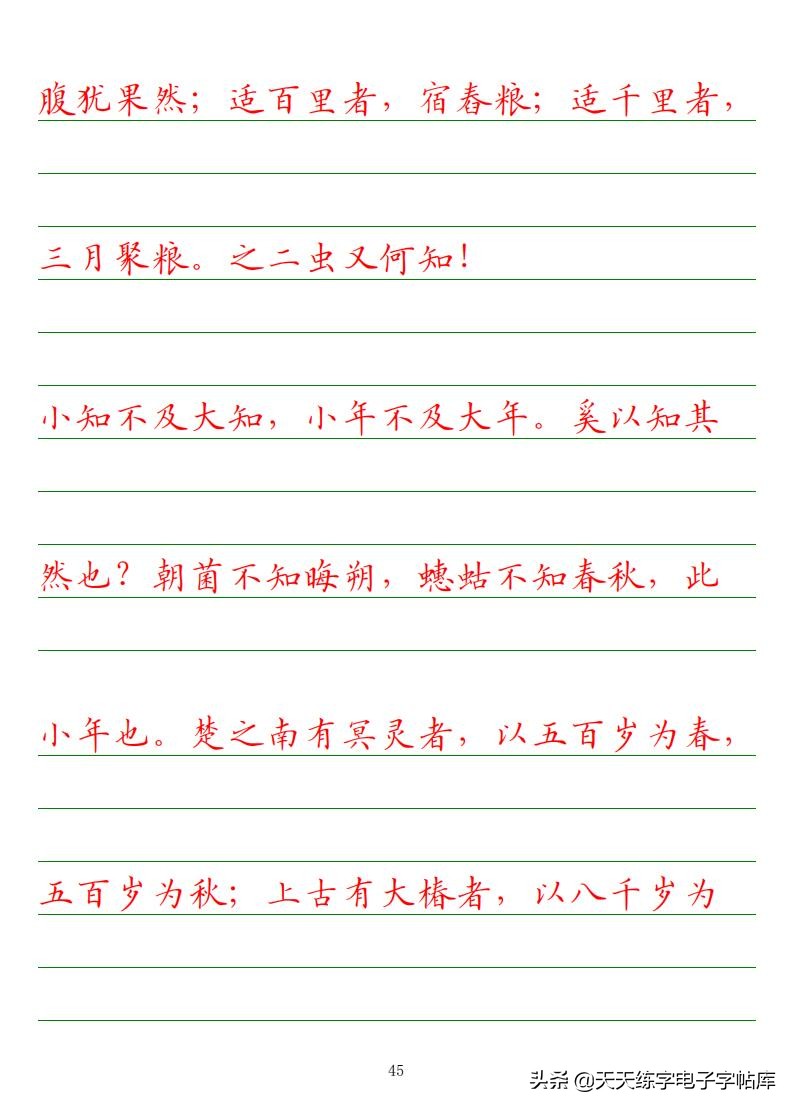 腹犹果然；适百里者，宿舂粮；适千里者，
三月聚粮。之二虫又何知！
小知不及大知，小年不及大年。奚以知其
然也？朝菌不知晦朔，蟪蛄不知春秋，此
小年也。楚之南有冥灵者，以五百岁为春，
五百岁为秋；上古有大椿者，以八千岁为
45
头条 @天天练字电子字帖库